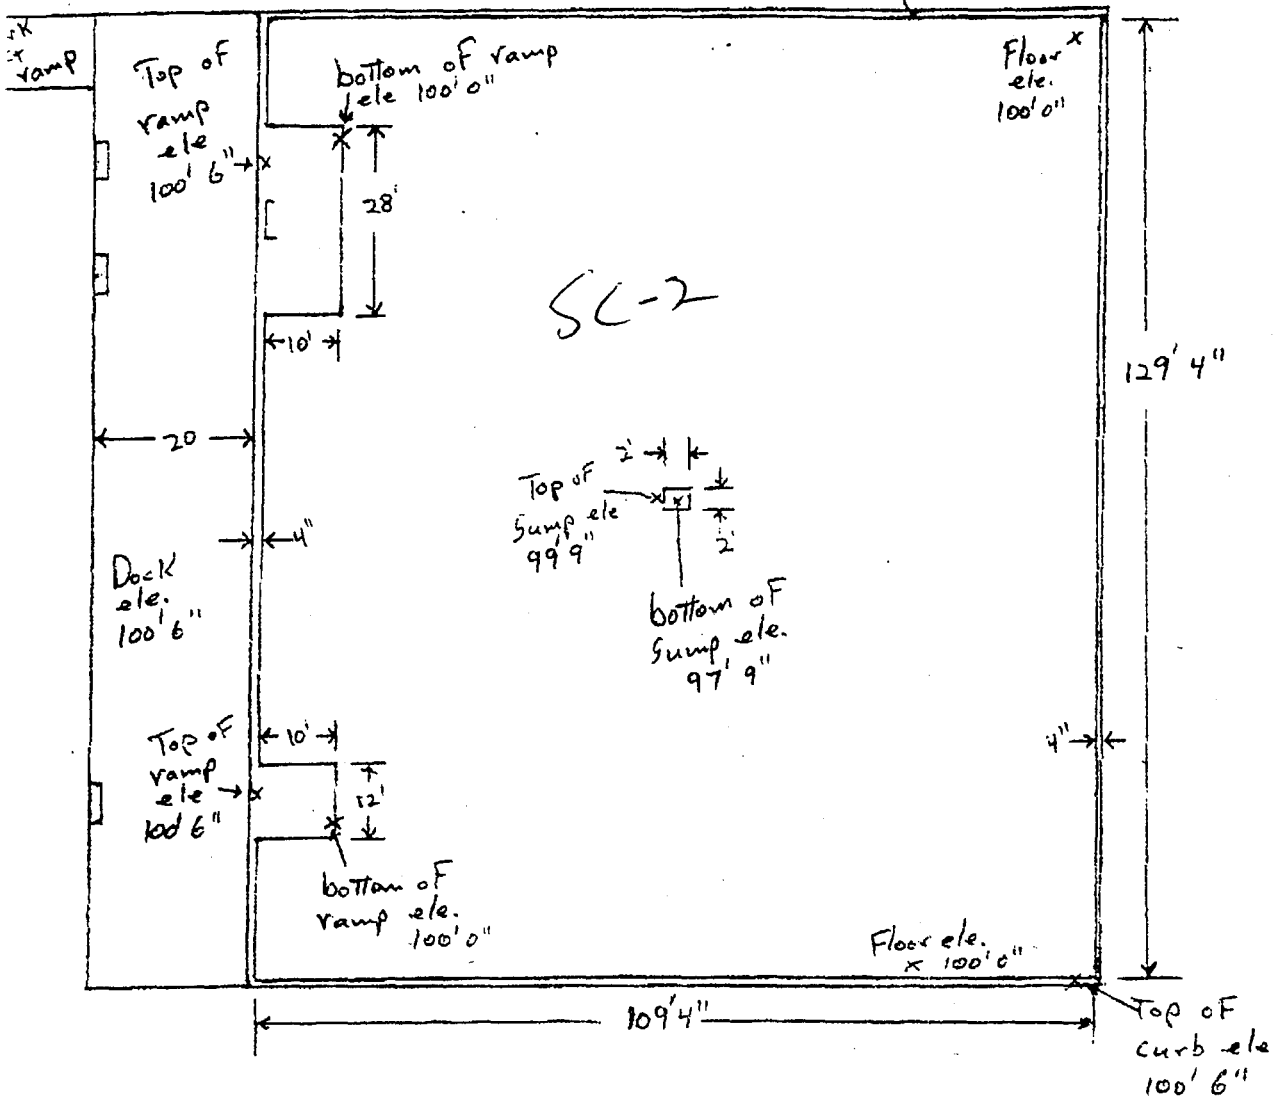 ramp
Top of
ramp
ele
100' 6"
bottom of ramp
ele 100'0"
Floor
ele.
100'0"
28'
10'
SC-2
129' 4"
20
2'
Top of
Sump ele
99' 9"
2'
4"
Dock
ele.
100'6"
bottom of
Sump ele.
97' 9"
10'
Top of
ramp
ele
100' 6"
12'
4"
bottom of
ramp ele.
100'0"
Floor ele.
100'0"
109'4"
Top of
curb ele
100' 6"